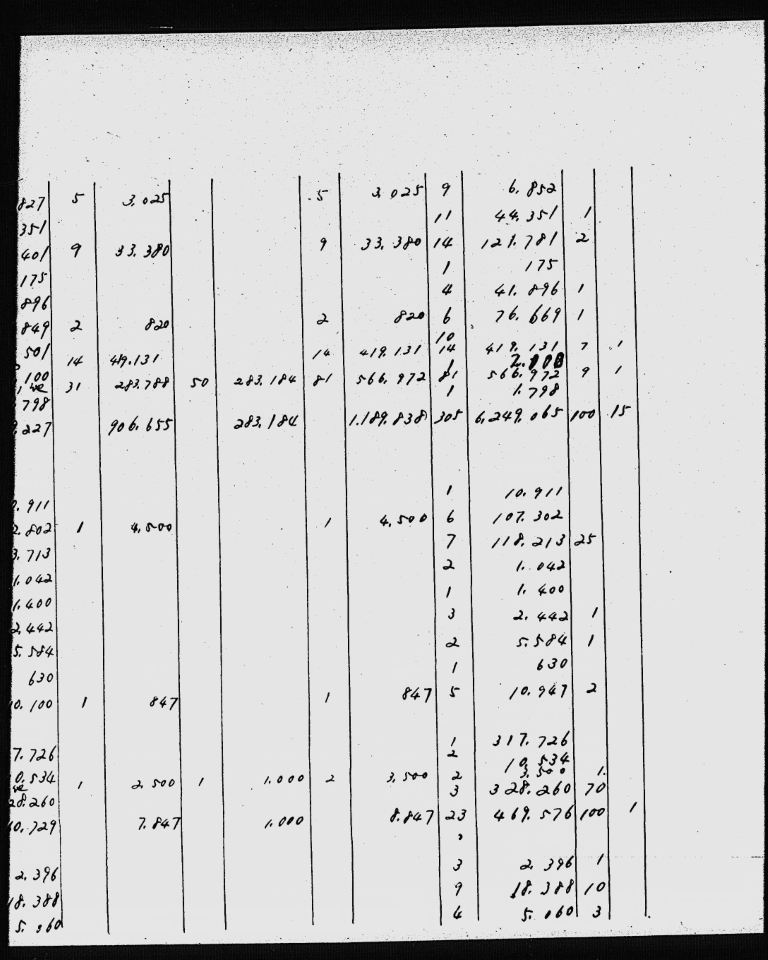 827 5 3,025 5 3,025 9 6,852
351 11 44,351 1
401 9 33,380 9 33,380 14 121,781 2
175 1 175
896 4 41,896 1
849 2 820 2 820 6 76,669 1
10
501 14 419,131 14 419,131 14 419,131 7 1
100 1
31 283,788 50 283,184 81 566,972 81 566,972 9 1
798 1 1,798
,227 906,655 283,184 1,189,838 305 6,249,065 100 15
0,911 1 10,911
2,802 1 4,500 1 4,500 6 107,302
3,713 7 118,213 25
1,042 2 1,042
1,400 1 1,400
2,442 3 2,442 1
5,584 2 5,584 1
630 1 630
10,100 1 847 1 847 5 10,947 2
7,726 1 317,726
10,534 2 10,534
1 2,500 1 1,000 2 3,500 2 3,500 1
28,260 3 328,260 70
60,729 7,847 1,000 8,847 23 469,576 100 1
2,396 3 2,396 1
18,388 9 18,388 10
5,060 4 5,060 3